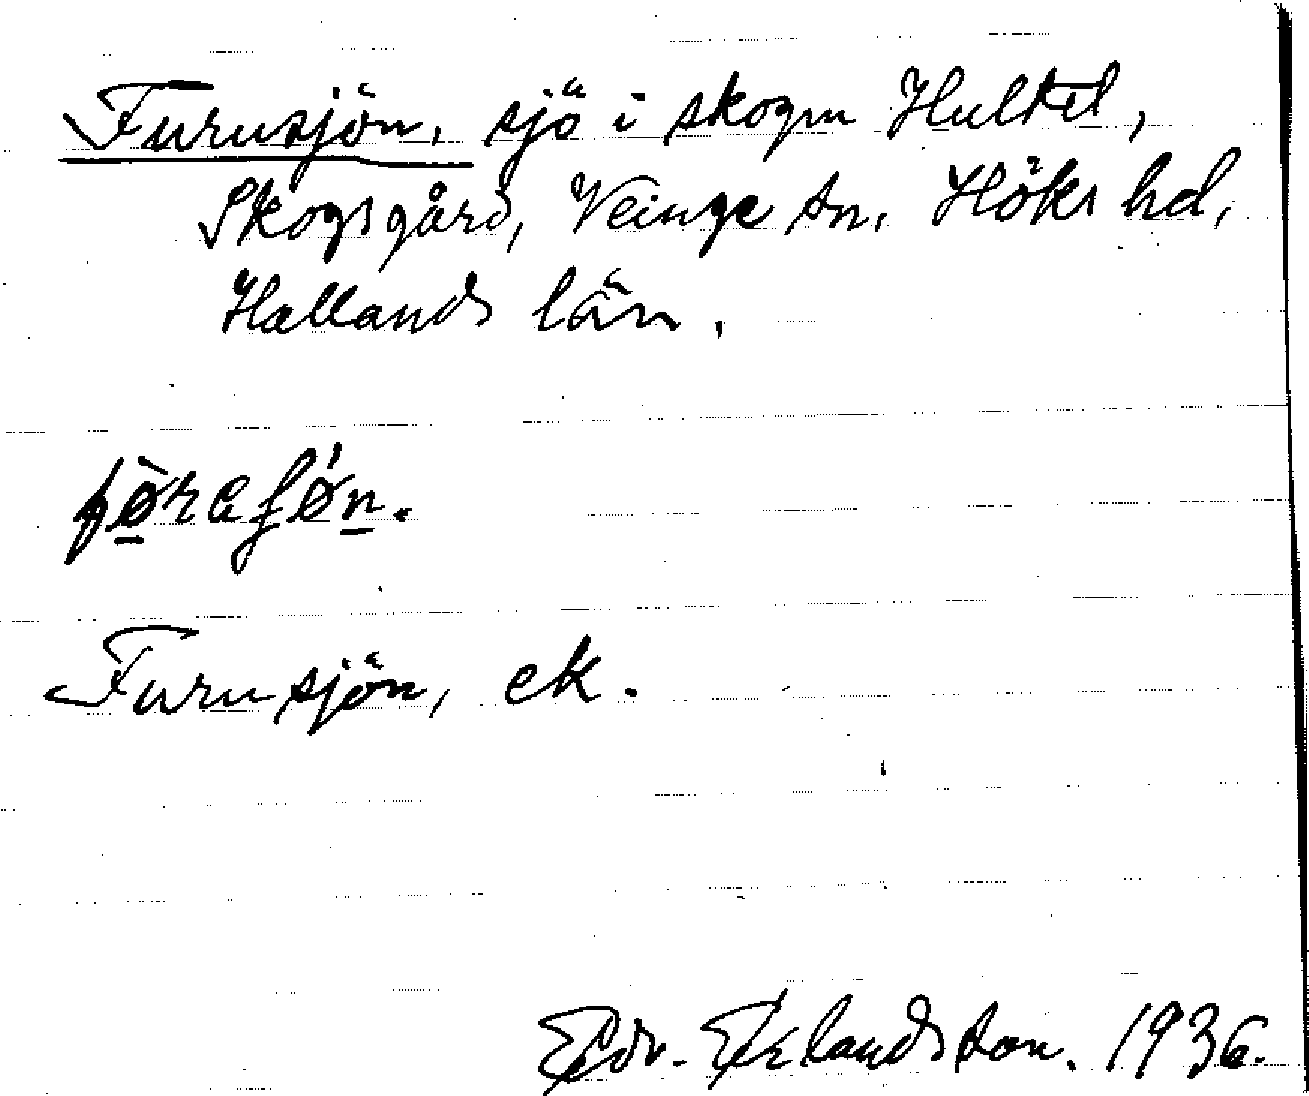 Furusjön, sjö i skogen Hultet,
Skogsgård, Veinge sn, Höks hd,
Hallands län.
Furusjön, ek.
Edv. Eklandsson. 1936.